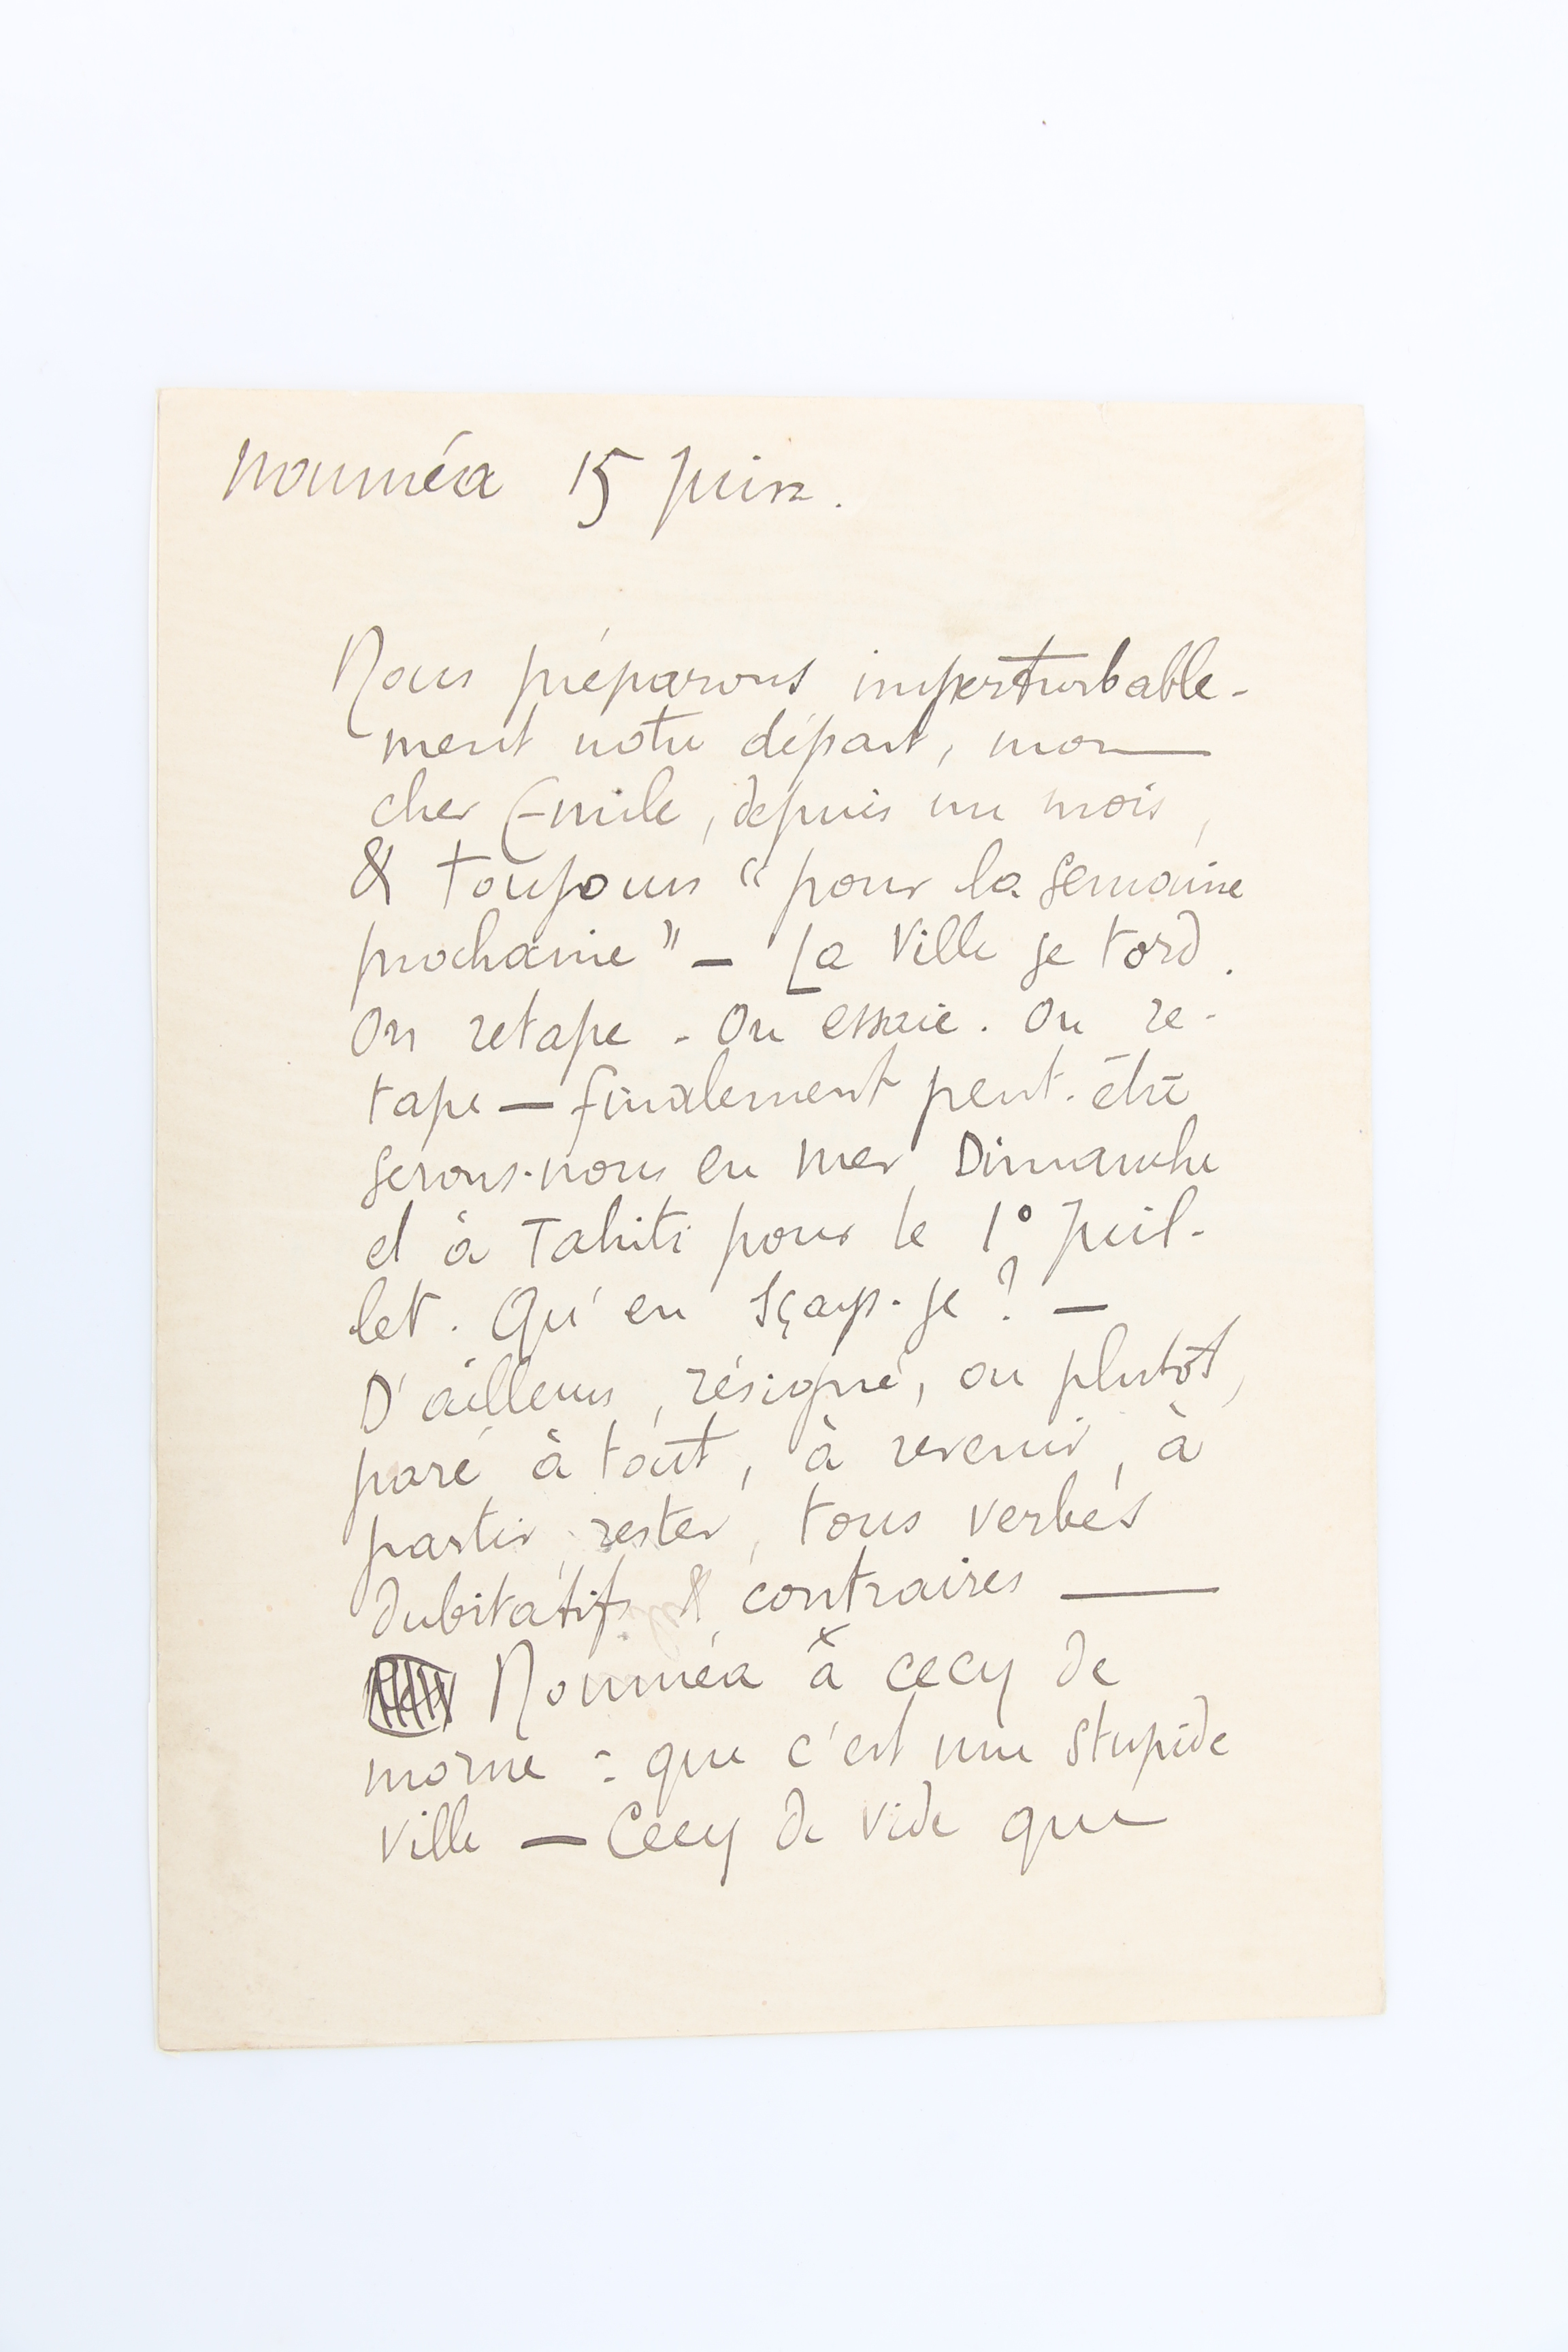 Nouméa 15 Juin.
Nous préparons imperturbable-
ment notre départ, mon
cher Emile, depuis un mois,
& toujours "pour la semaine
prochaine" — La Ville se tord.
On retape. On essaie. On re-
tape — finalement peut-être
serons-nous en mer Dimanche
et à Tahiti pour le 1° Juil-
let. Qu'en sçays-je ? —
D'ailleurs, résigné, ou plutôt,
paré à tout, à revenir, à
partir, rester, tous verbes
dubitatifs & contraires —
Nouméa a cecy de
morne : que c'est une stupide
Ville — Cecy de vide que